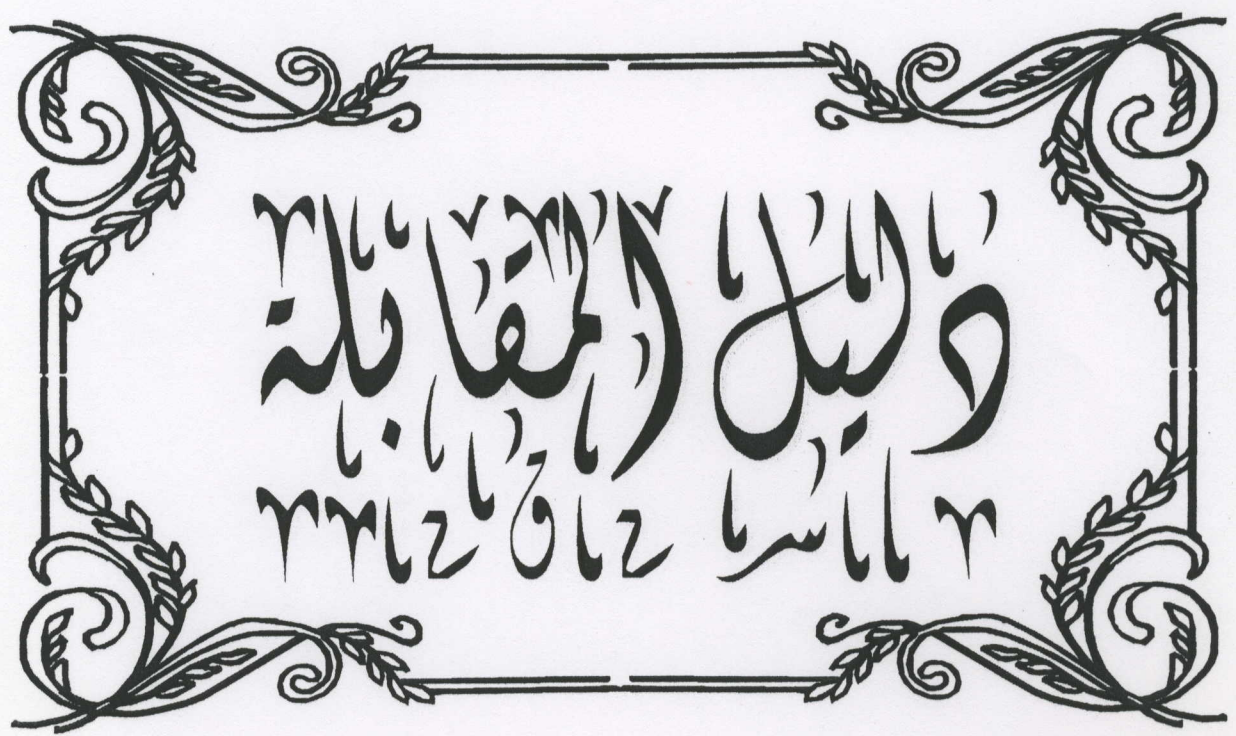 دليل المقابلة